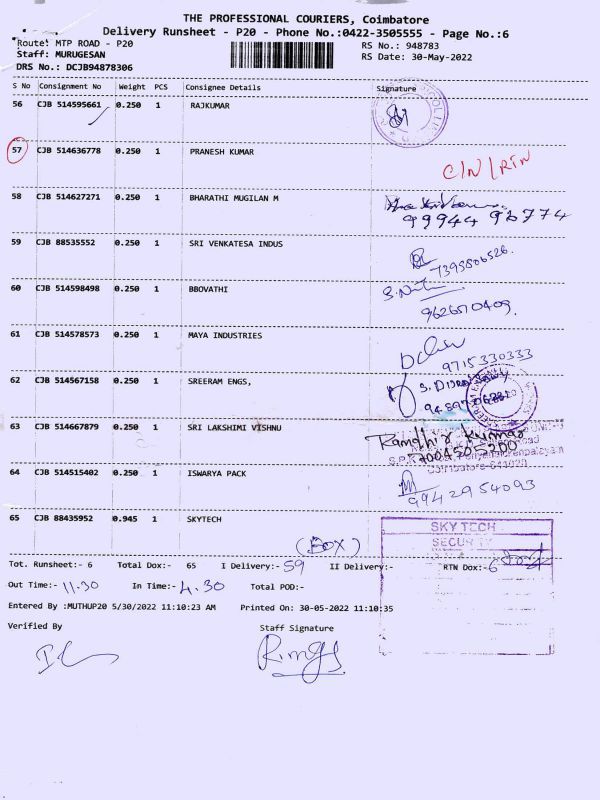 THE PROFESSIONAL COURIERS, Coimbatore
Delivery Runsheet - P20 - Phone No.:0422-3505555 - Page No.:6
Route: MTP ROAD - P20
RS No.: 948783
Staff: MURUGESAN
RS Date: 30-May-2022
DRS No.: DCJB94878306
S No Consignment No Weight PCS Consignee Details Signature
56 CJB 514595661 0.250 1 RAJKUMAR
57 CJB 514636778 0.250 1 PRANESH KUMAR C/N / RTN
58 CJB 514627271 0.250 1 BHARATHI MUGILAN M
99944 96774
59 CJB 88535552 0.250 1 SRI VENKATESA INDUS
7395806526.
60 CJB 514598498 0.250 1 BBOVATHI
9626570409.
61 CJB 514578573 0.250 1 MAYA INDUSTRIES
9715330333
62 CJB 514567158 0.250 1 SREERAM ENGS,
63 CJB 514667879 0.250 1 SRI LAKSHIMI VISHNU
Randhir Kumar
64 CJB 514515402 0.250 1 ISWARYA PACK
99429 54093
65 CJB 88435952 0.945 1 SKYTECH
(BOX)
SKYTECH
SECURITY
Tot. Runsheet:- 6 Total Dox:- 65 I Delivery:- 59 II Delivery:- RTN Dox:-6
Out Time:- 11.30 In Time:- 4.30 Total POD:-
Entered By :MUTHUP20 5/30/2022 11:10:23 AM Printed On: 30-05-2022 11:10:35
Verified By Staff Signature